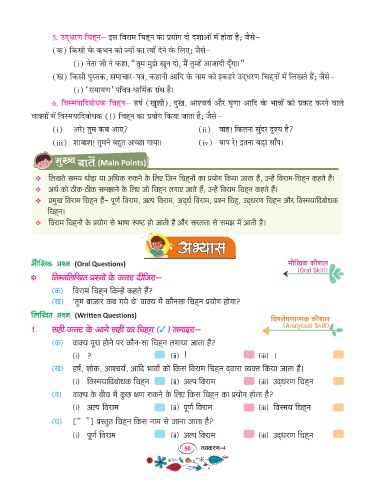 5. उद्धरण चिह्न– इस विराम चिह्न का प्रयोग दो दशाओं में होता है; जैसे–
(क) किसी के कथन को ज्यों का त्यों देने के लिए; जैसे–
(i) नेता जी ने कहा, “तुम मुझे खून दो, मैं तुम्हें आजादी दूँगा।”
(ख) किसी पुस्तक, समाचार-पत्र, कहानी आदि के नाम को इकहरे उद्धरण चिह्नों में लिखते हैं; जैसे–
(i) ‘रामायण’ पवित्र धार्मिक ग्रंथ है।
6. विस्मयादिबोधक चिह्न– हर्ष (खुशी), दुख, आश्चर्य और घृणा आदि के भावों को प्रकट करने वाले
वाक्यों में विस्मयादिबोधक (!) चिह्न का प्रयोग किया जाता है; जैसे–
(i) अरे! तुम कब आए? (ii) वाह! कितना सुंदर दृश्य है?
(iii) शाबाश! तुमने बहुत अच्छा गाया। (iv) बाप रे! इतना बड़ा साँप।
मुख्य बातें (Main Points)
❖ लिखते समय थोड़ा या अधिक रुकने के लिए जिन चिह्नों का प्रयोग किया जाता है, उन्हें विराम-चिह्न कहते हैं।
❖ अर्थ को ठीक-ठीक समझाने के लिए जो चिह्न लगाए जाते हैं, उन्हें विराम चिह्न कहते हैं।
❖ प्रमुख विराम चिह्न हैं– पूर्ण विराम, अल्प विराम, अर्द्ध विराम, प्रश्न चिह्न, उद्धरण चिह्न और विस्मयादिबोधक
चिह्न।
❖ विराम चिह्नों के प्रयोग से भाषा स्पष्ट हो जाती है और सरलता से समझ में आती है।
अभ्यास
मौखिक प्रश्न (Oral Questions)
मौखिक कौशल
(Oral Skill)
❖ निम्नलिखित प्रश्नों के उत्तर दीजिए–
(क) विराम चिह्न किन्हें कहते हैं?
(ख) ‘तुम बाजार कब गये थे’ वाक्य में कौनसा चिह्न प्रयोग होगा?
लिखित प्रश्न (Written Questions)
विश्लेषणात्मक कौशल
(Analytical Skill)
1. सही उत्तर के आगे सही का चिह्न (✓) लगाइए–
(क) वाक्य पूरा होने पर कौन-सा चिह्न लगाया जाता है?
(i) ? (ii) ! (iii) ।
(ख) हर्ष, शोक, आश्चर्य, आदि भावों को किस विराम चिह्न द्वारा व्यक्त किया जाता है।
(i) विस्मयादिबोधक चिह्न (ii) अल्प विराम (iii) उद्धरण चिह्न
(ग) वाक्य के बीच में कुछ क्षण रुकने के लिए किस चिह्न का प्रयोग होता है?
(i) अल्प विराम (ii) पूर्ण विराम (iii) विस्मय चिह्न
(घ) [“ ”] प्रस्तुत चिह्न किस नाम से जाना जाता है?
(i) पूर्ण विराम (ii) अल्प विराम (iii) उद्धरण चिह्न
50 व्याकरण-4